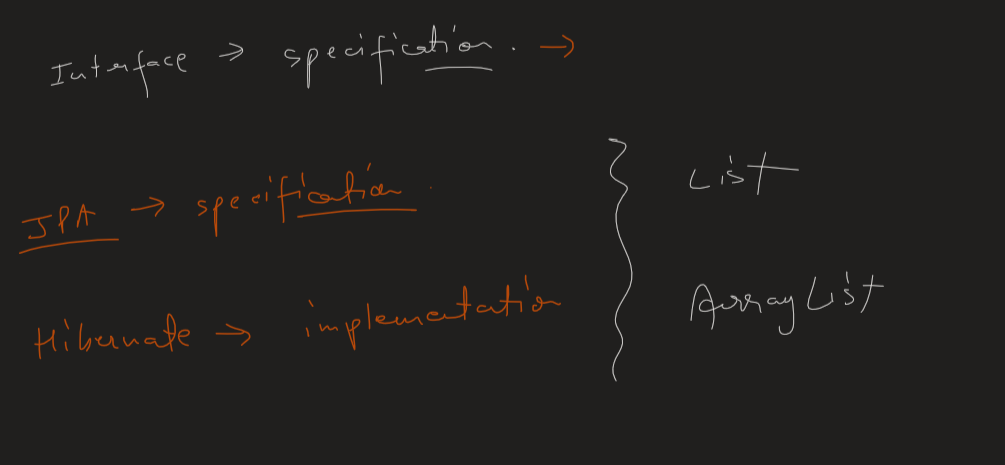 Interface → specification. →
JPA → specification.
List
Hibernate → implementation
ArrayList